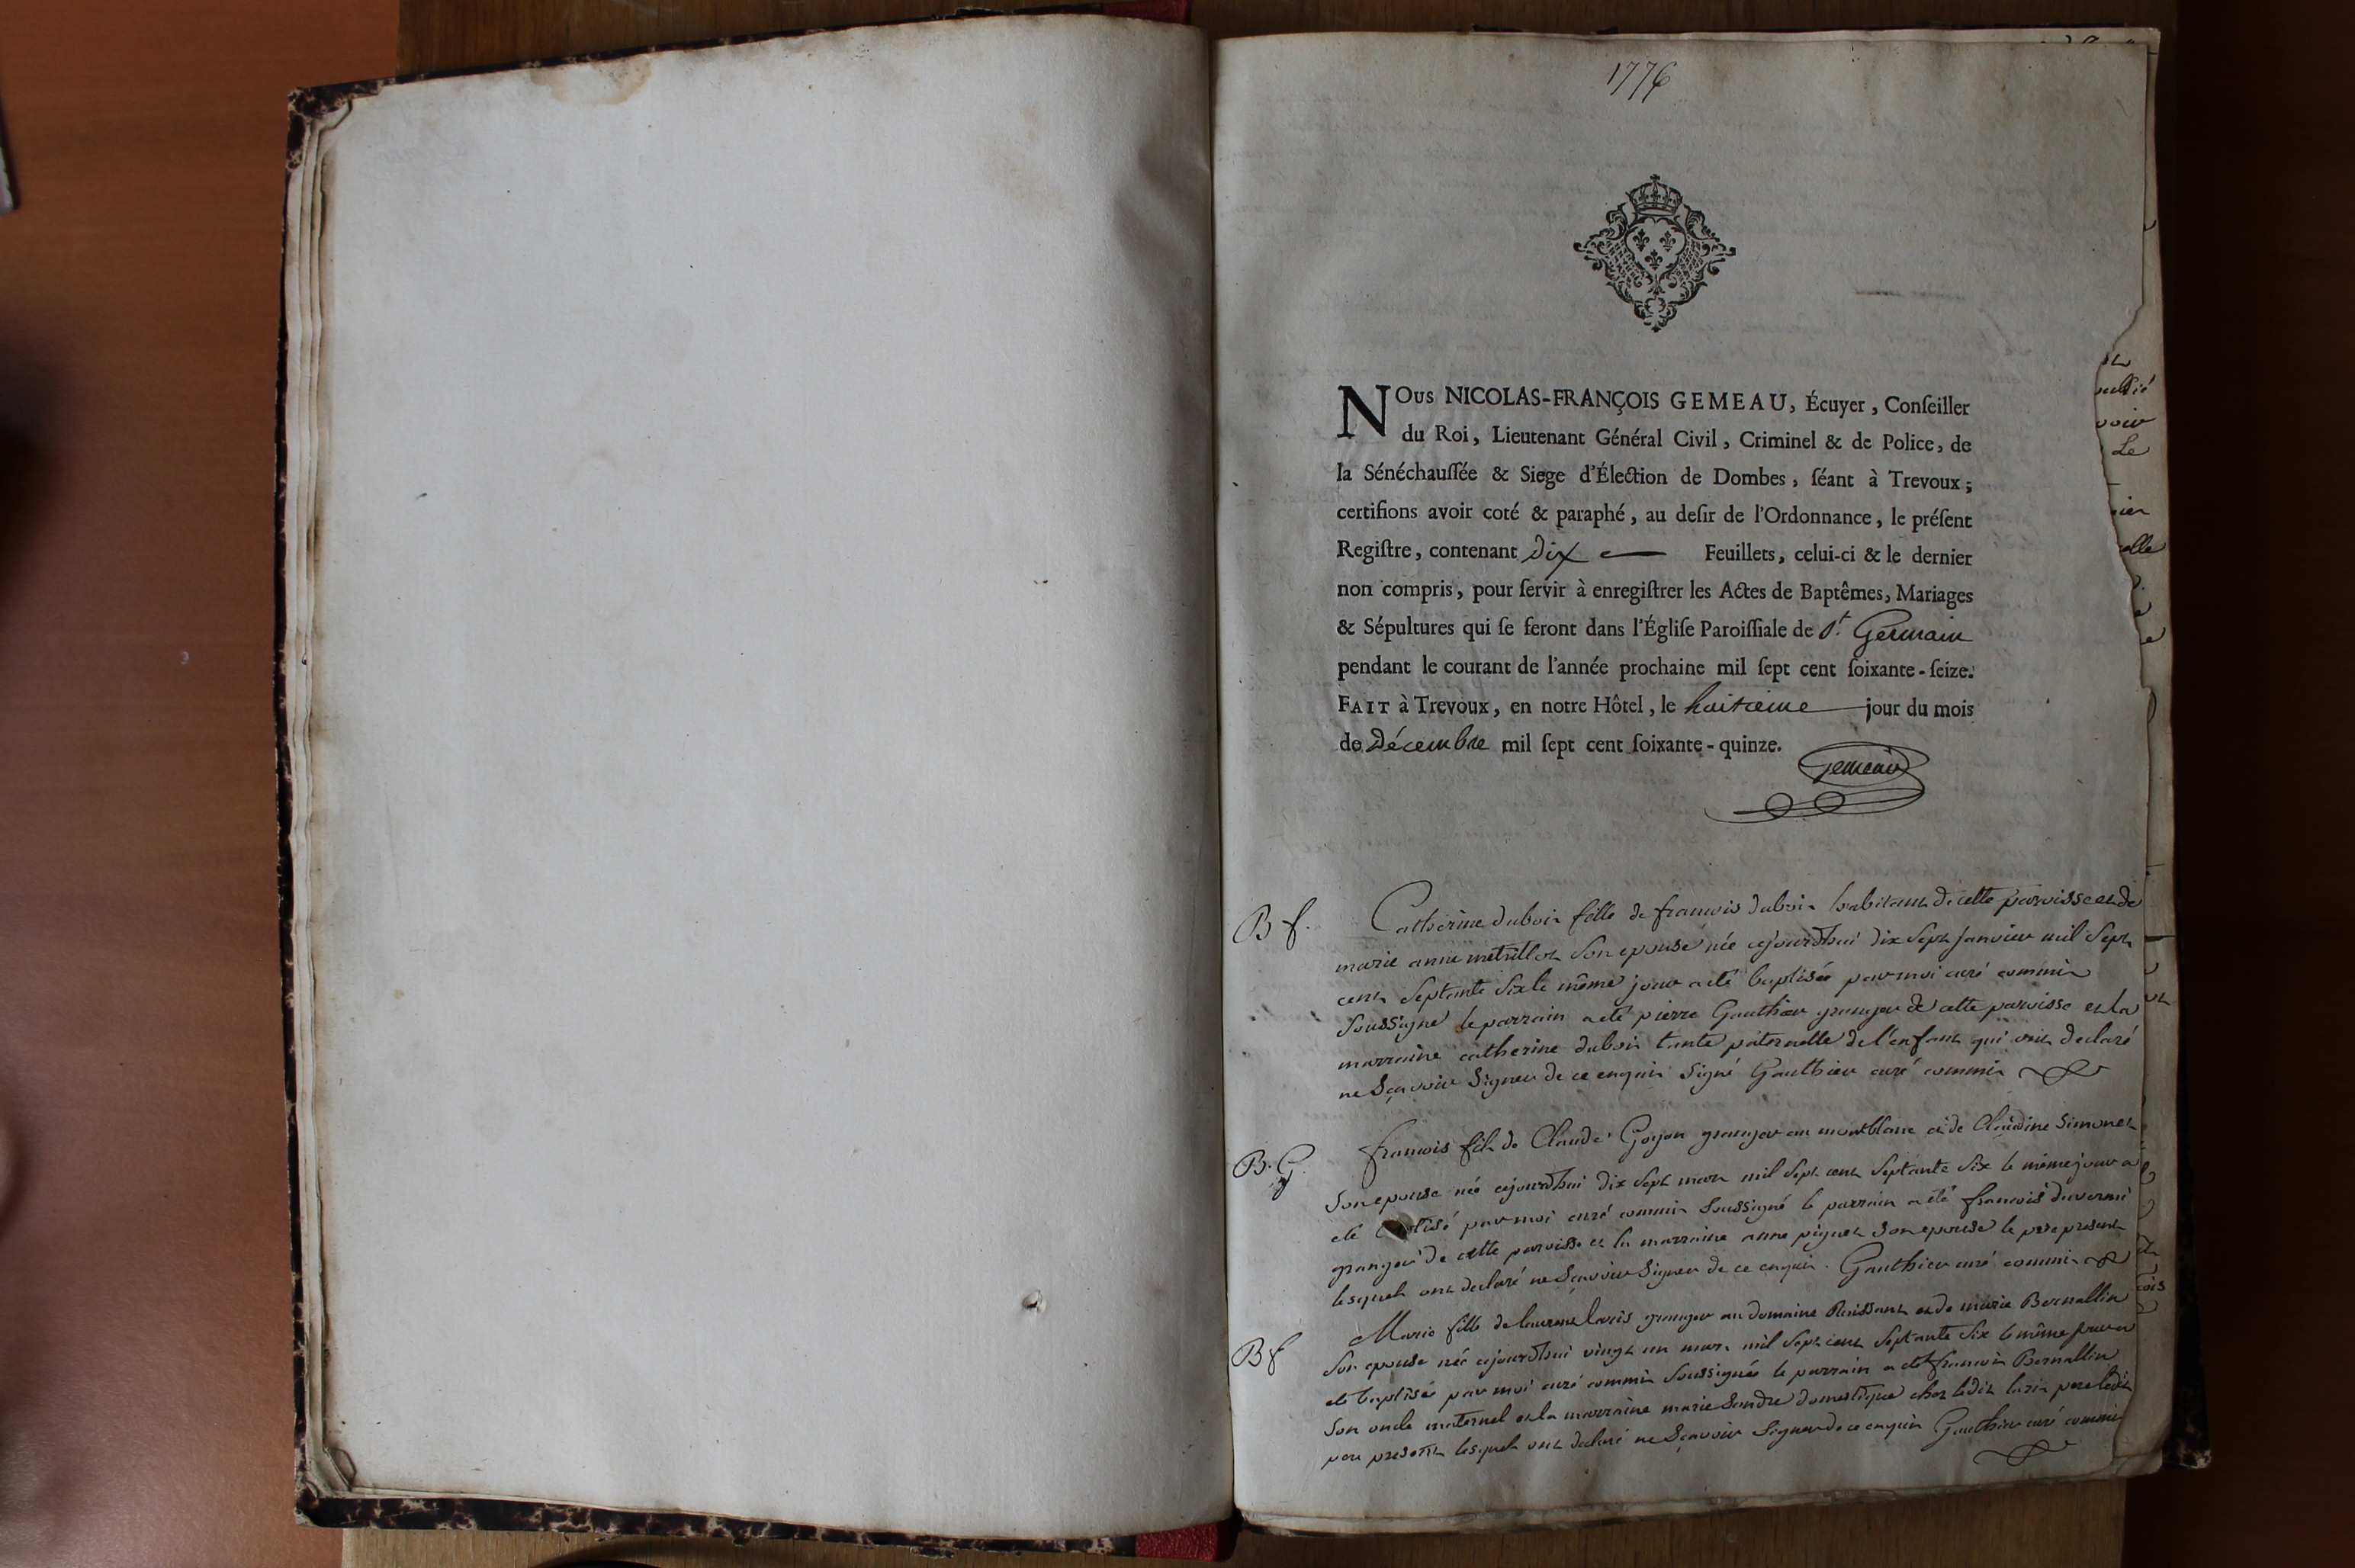 1776
NOUS NICOLAS-FRANÇOIS GEMEAU, Écuyer, Conſeiller
du Roi, Lieutenant Général Civil, Criminel & de Police, de
la Sénéchauſſée & Siege d'Élection de Dombes, ſéant à Trevoux;
certifions avoir coté & paraphé, au deſir de l'Ordonnance, le préſent
Regiſtre, contenant dix Feuillets, celui-ci & le dernier
non compris, pour ſervir à enregiſtrer les Actes de Baptêmes, Mariages
& Sépultures qui ſe feront dans l'Égliſe Paroiſſiale de St. Germain
pendant le courant de l'année prochaine mil ſept cent ſoixante-ſeize.
FAIT à Trevoux, en notre Hôtel, le huitieme jour du mois
de Décembre mil ſept cent ſoixante-quinze.
Gemeau
B f. Catherine dubois fille de francois dubois habitant de cette paroisse et de
marie anne son epouse née cejourdhui dix sept janvier mil sept
cent septante six le même jour a été baptisée par moi curé commis
soussigné le parrain a été pierre Gauthier granger de cette paroisse et la
marraine catherine dubois tante paternelle de l'enfant qui ont declaré
ne sçavoir signer de ce enquis signé Gauthier curé commis
B. G. francois fils de Claude Goyon granger au montblanc et de Claudine Simonet
son epouse né cejourdhui dix sept mars mil sept cent septante six le même jour a
été par moi curé commis soussigné le parrain a été francois
granger de cette paroisse et la marraine anne piguet son epouse le pere present
lesquels ont declaré ne sçavoir signer de ce enquis. Gauthier curé commis
B f Marie fille de laurent granger au domaine Ruissant et de marie Bernallin
son epouse née cejourdhui vingt un mars mil sept cent septante six le même jour a
été baptisée par moi curé commis soussigné le parrain a été francois Bernallin
son oncle maternel et la marraine marie domestique chez ledit pere ledit
pere present lesquels ont declaré ne sçavoir signer de ce enquis Gauthier curé commis